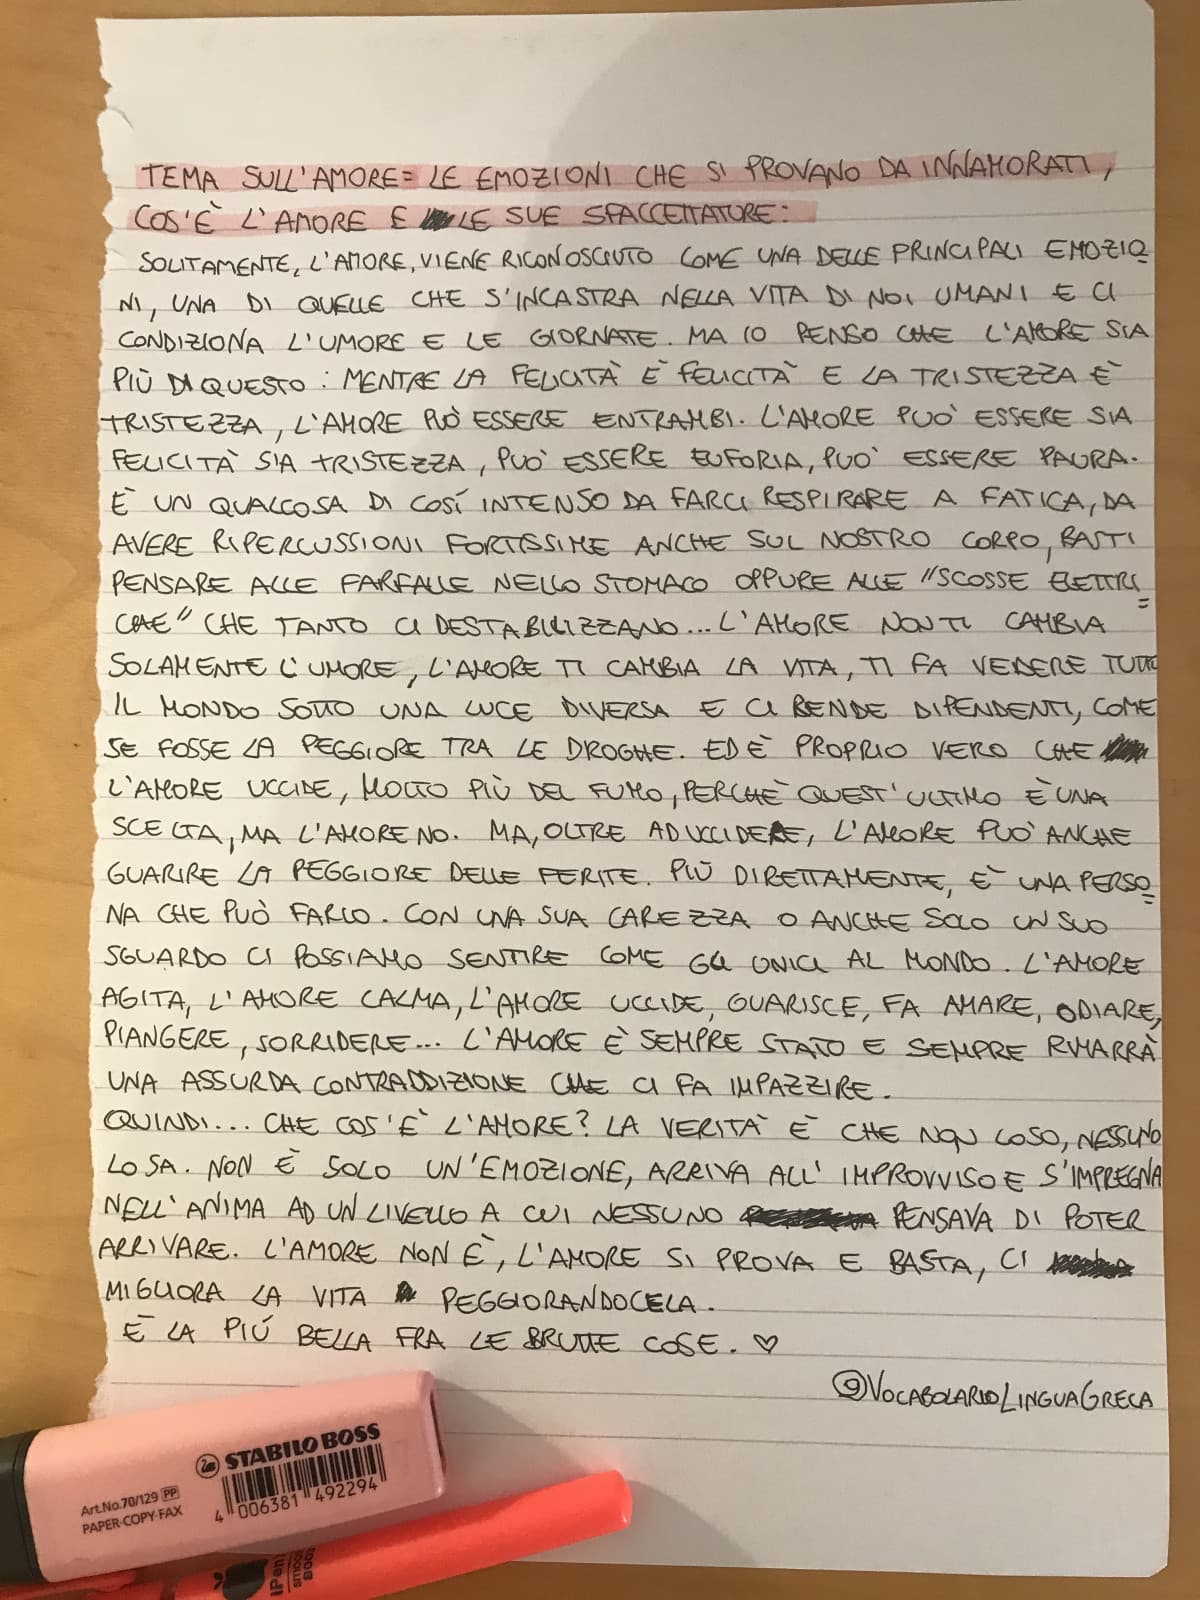 TEMA SULL'AMORE= LE EMOZIONI CHE SI PROVANO DA INNAMORATI,
COS'È L'AMORE E LE SUE SFACCETTATURE:
SOLITAMENTE, L'AMORE, VIENE RICONOSCIUTO COME UNA DELLE PRINCIPALI EMOZIO
NI, UNA DI QUELLE CHE S'INCASTRA NELLA VITA DI NOI UMANI E CI
CONDIZIONA L'UMORE E LE GIORNATE. MA IO PENSO CHE L'AMORE SIA
PIÙ DI QUESTO: MENTRE LA FELICITÀ È FELICITÀ E LA TRISTEZZA È
TRISTEZZA, L'AMORE PUÒ ESSERE ENTRAMBI. L'AMORE PUO' ESSERE SIA
FELICITÀ SIA TRISTEZZA, PUO' ESSERE EUFORIA, PUO' ESSERE PAURA.
È UN QUALCOSA DI COSÍ INTENSO DA FARCI RESPIRARE A FATICA, DA
AVERE RIPERCUSSIONI FORTISSIME ANCHE SUL NOSTRO CORPO, BASTI
PENSARE ALLE FARFALLE NELLO STOMACO OPPURE ALLE "SCOSSE ELETTRI
CHE" CHE TANTO CI DESTABILIZZANO... L'AMORE NON TI CAMBIA
SOLAMENTE L'UMORE, L'AMORE TI CAMBIA LA VITA, TI FA VEDERE TUTTO
IL MONDO SOTTO UNA LUCE DIVERSA E CI RENDE DIPENDENTI, COME
SE FOSSE LA PEGGIORE TRA LE DROGHE. ED È PROPRIO VERO CHE
L'AMORE UCCIDE, MOLTO PIÙ DEL FUMO, PERCHÈ QUEST'ULTIMO È UNA
SCELTA, MA L'AMORE NO. MA, OLTRE AD UCCIDERE, L'AMORE PUO' ANCHE
GUARIRE LA PEGGIORE DELLE FERITE. PIÙ DIRETTAMENTE, È UNA PERSO
NA CHE PUÒ FARLO. CON UNA SUA CAREZZA O ANCHE SOLO UN SUO
SGUARDO CI POSSIAMO SENTIRE COME GLI UNICI AL MONDO. L'AMORE
AGITA, L'AMORE CALMA, L'AMORE UCCIDE, GUARISCE, FA AMARE, ODIARE,
PIANGERE, SORRIDERE... L'AMORE È SEMPRE STATO E SEMPRE RIMARRÀ
UNA ASSURDA CONTRADDIZIONE CHE CI FA IMPAZZIRE.
QUINDI... CHE COS'È L'AMORE? LA VERITÀ È CHE NON LO SO, NESSUNO
LO SA. NON È SOLO UN'EMOZIONE, ARRIVA ALL'IMPROVVISO E S'IMPREGNA
NELL'ANIMA AD UN LIVELLO A CUI NESSUNO PENSAVA DI POTER
ARRIVARE. L'AMORE NON È, L'AMORE SI PROVA E BASTA, CI
MIGLIORA LA VITA PEGGIORANDOCELA.
È LA PIÚ BELLA FRA LE BRUTTE COSE. ♡
@VOCABOLARIOLINGUAGRECA
STABILO BOSS
Art.No.70/129 PP
PAPER-COPY-FAX
4 006381 492294
iPen